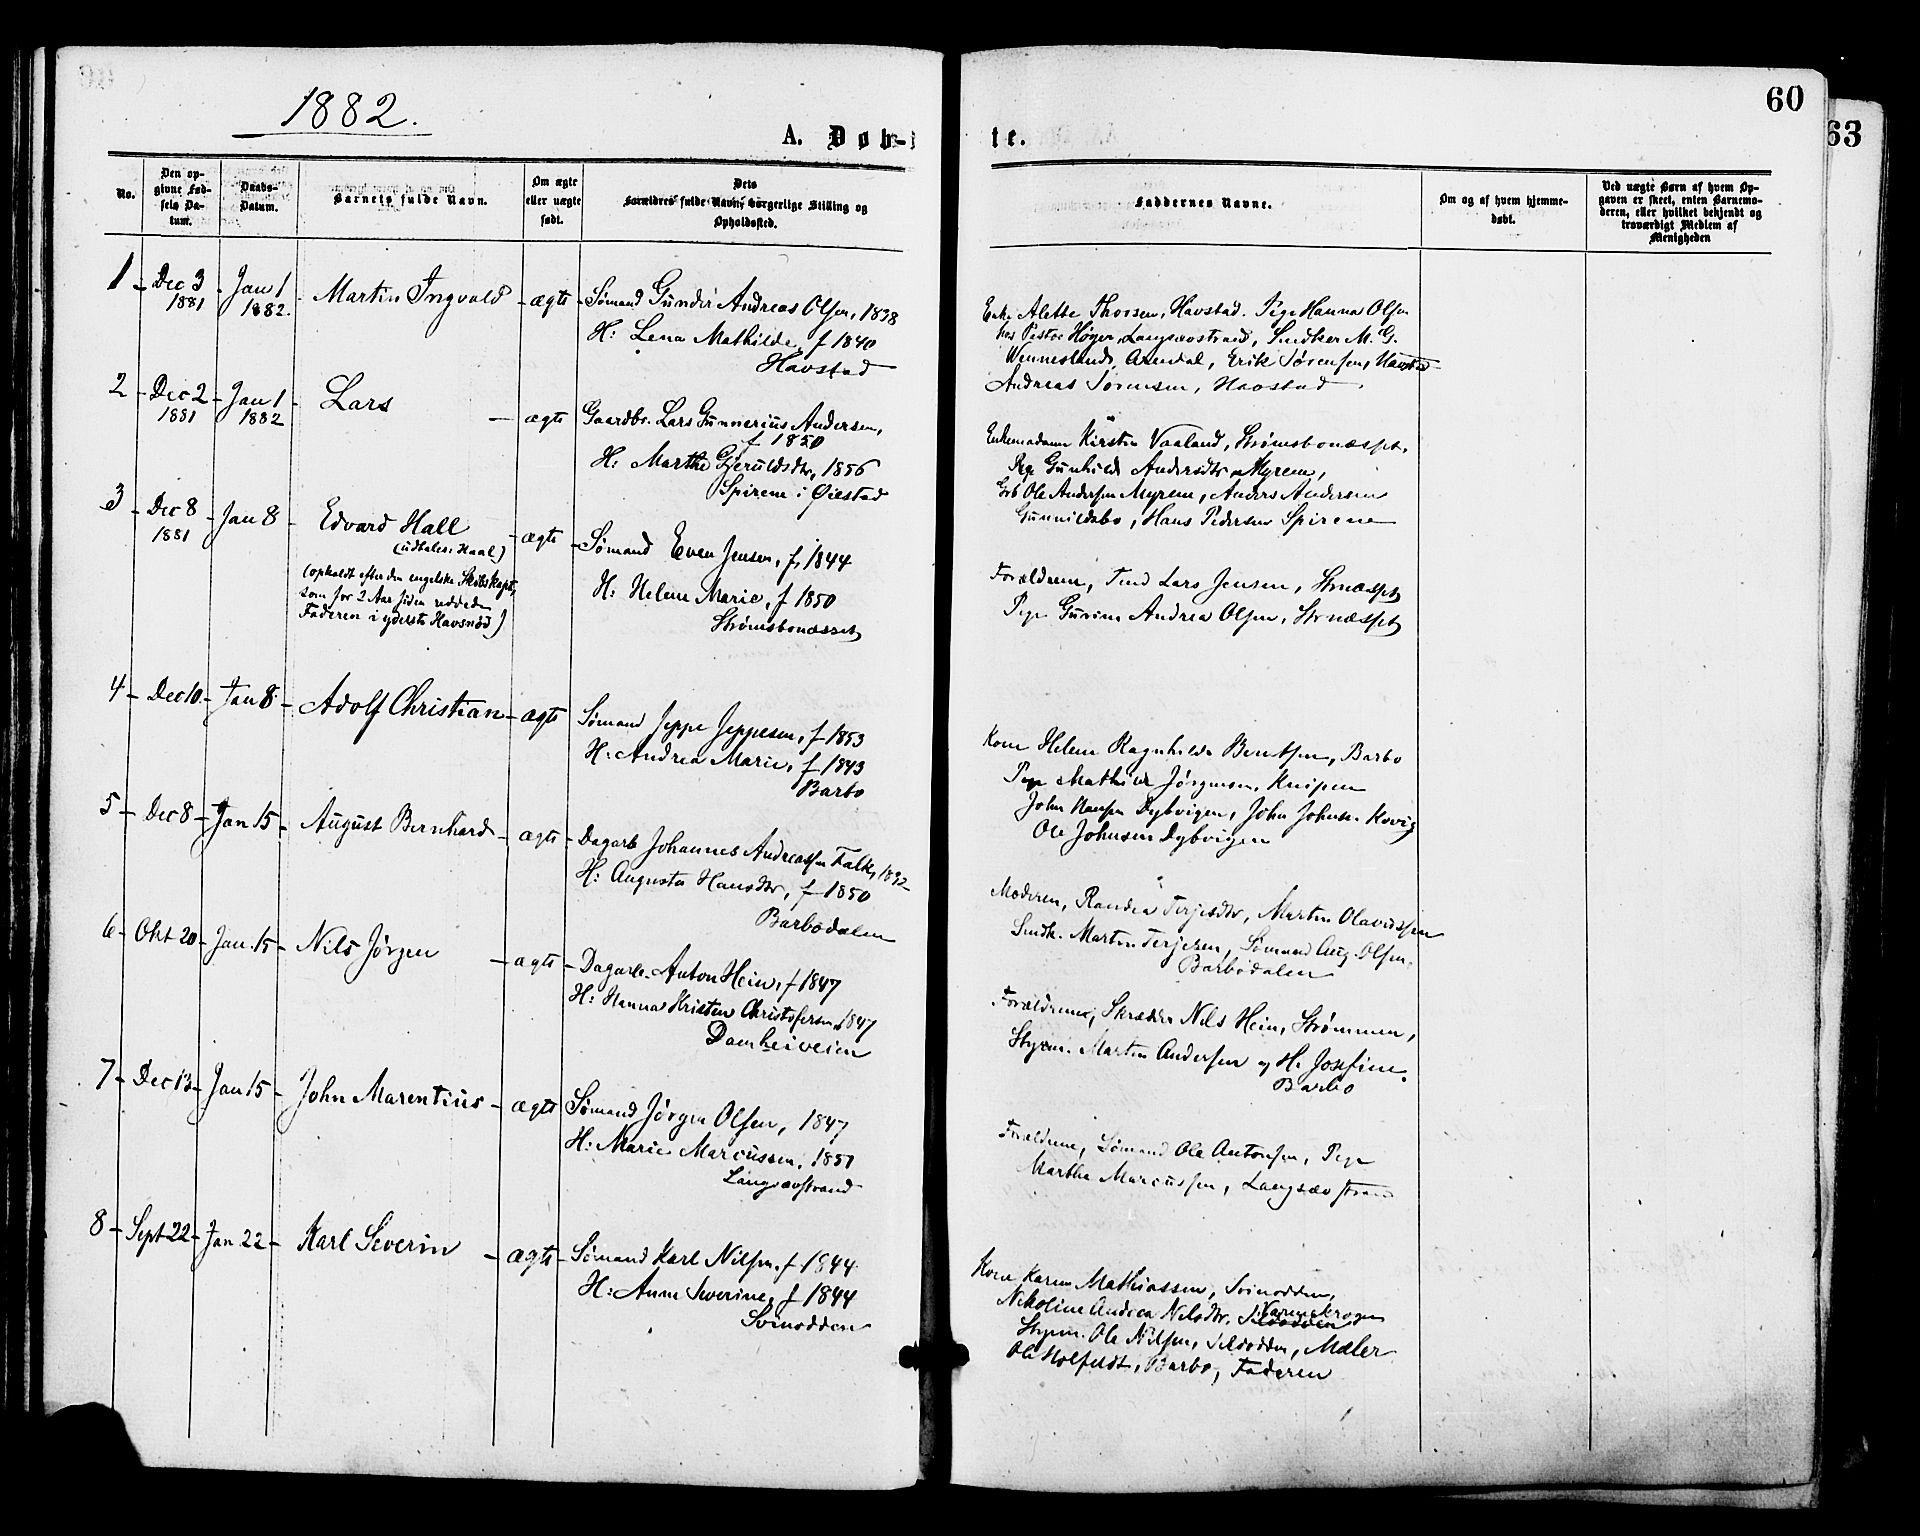 1882.
60
63
A. Døb-
te.
No.
Den op-
givne Fød-
sels Da-
tum.
Daabs-
Datum.
Barnets fulde Navn.
Om ægte
eller uægte
født.
Dets
Forældres fulde Navn, borgerlige Stilling og
Opholdssted.
Faddernes Navne.
Om og af hvem hjemme-
døbt.
Ved uægte Børn af hvem Op-
gaven er skeet, enten Barnemo-
deren, eller hvilket bekjendt og
troværdigt Medlem af
Menigheden
1 - Dec 3 - Jan 1 - Martin Ingvald - ægte - Sømand Gunder Andreas Olsen, 1838
1881 1882.
H: Lena Mathilde, f 1840
Havstad
Enke Alette Thorsen, Havstad. Pige Hanna Olsen
hos Pastor Høyer, Langsævstrand, Snedker M. G.
Wennesland, Arendal, Erik Sørensen, Havstad
Andreas Sørensen, Havstad
2 - Dec 2 - Jan 1 - Lars - ægte - Gaardbr. Lars Gunnerius Andersen,
1881 1882
f 1850
H: Marthe Gjeruldsdtr, 1856
Spirene i Øiestad
Enkemadam Kirsten Vaaland, Strømsbonæsset.
Pige Gunhild Andersdtr Myrene,
Gbr Ole Andersen Myrene, Anders Andersen
Gunnildsbo, Hans Pedersen Spirene
3 - Dec 8 - Jan 8 - Edvard Hall - ægte - Sømand Even Jensen, f. 1844
1881
(udtales: Haal)
(opkaldt efter den engelske Skibskapt,
som for 2 Aar siden reddede
Faderen i yderste Havsnød)
H: Helene Marie, f 1850
Strømsbonæsset
Forældrene, Tmd Lars Jensen, Strnæsset
Pige Gurine Andrea Olsen, Strnæsset
4 - Dec 10 - Jan 8 - Adolf Christian - ægte - Sømand Jeppe Jeppesen, f 1853
H: Andrea Marie, f 1843
Barbo
Kone Helene Ragnhilde Bentsen, Barbo
Pige Mathilde Jørgensen, Knipen
John Hansen Dybvigen, John Johns.
Ole Johnsen Dybvigen
5 - Dec 8 - Jan 15 - August Bernhard - ægte - Dagarb Johannes Andreassen Falk, 1832
H: Augusta Hansdtr, f 1850
Barbodalen
Moderen, Randea Terjesdtr, Martin Olavessen
Snedk. Martin Terjesen, Sømand Aug. Olsen,
Barbodalen
6 - Okt 20 - Jan. 15 - Nils Jørgen - ægte - Dagarb. Anton Hein, f 1847
H: Hanna Kristen Christofersen, 1847
Damheiveien
Forældrene, Skrædder Nils Hein, Strømmen,
Styrm. Martin Andersen og H. Josefine
Barbo
7 - Dec 13 - Jan 15 - John Marentius - ægte - Sømand Jørgen Olsen, 1847
H: Marie Marcussen, 1851
Langsævstrand
Forældrene, Sømand Ole Antonsen, Pige
Marthe Marcussen, Langsævstrand
8 - Sept 22 - Jan 22 - Karl Severin - ægte - Sømand Karl Nilsen, f 1844
H: Anne Severine, f 1844
Svinodden
Kone Karen Mathiassen, Svinodden,
Nikoline Andrea Nilsdtr,
Styrm. Ole Nilsen, Sildodden, Maler
Ole Holfeldt, Barbo, Faderen